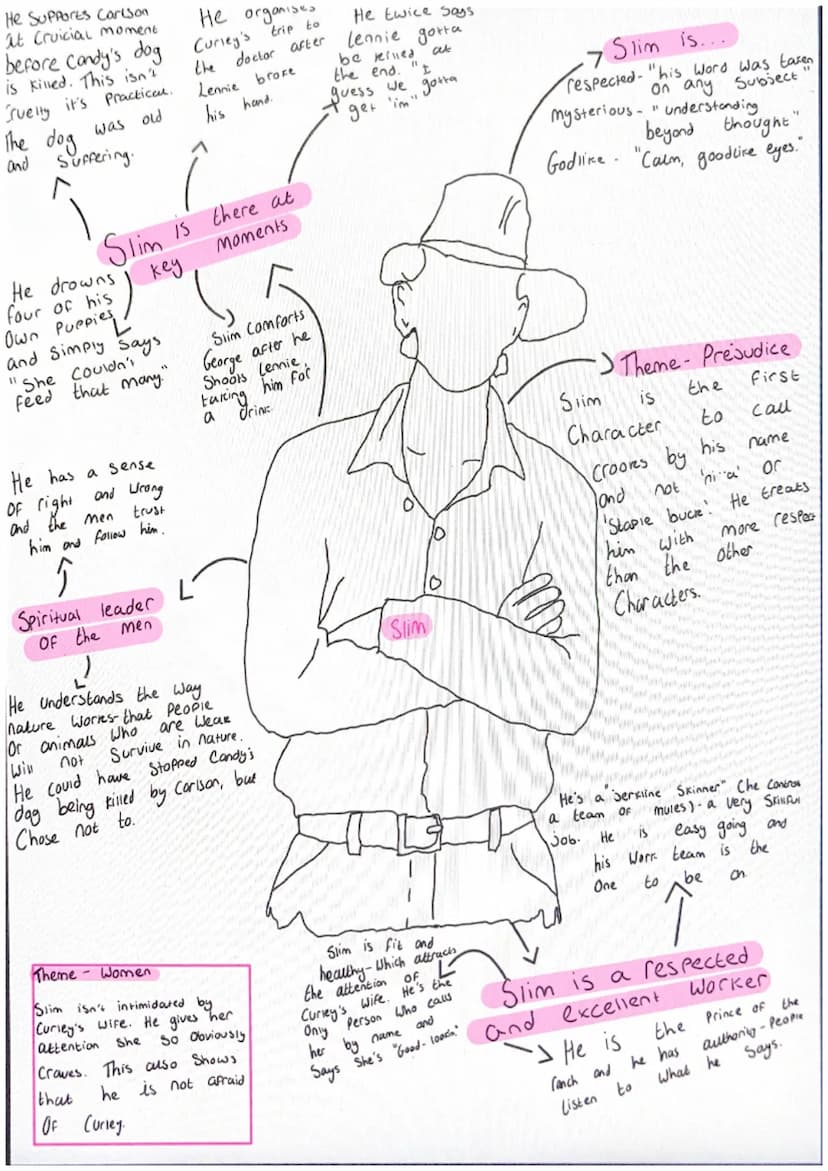 He supports Carlson
at crucicial moment
before Candy's dog
is killed. This isn't
cruelty it's Practical.
The dog was old
and suffering.
He organises
Curley's trip to
the doctor after
Lennie broke
his hand.
He twice says
Lennie gotta
be killed at
the end. "I
guess we gotta
get 'im"
Slim is...
respected - "his word was taken
on any subject"
Mysterious - "understanding
beyond thought"
Godlike - "Calm, goodlike eyes."
Slim is there at
key moments
He drowns
four of his
own Puppies
and simply says
"She couldn't
feed that many."
Slim comforts
George after he
shoots Lennie,
taking him for
a drink.
Theme - Prejudice
Slim is the first
Character to call
crooks by his name
and not 'ni**a' or
'Stable buck'. He treats
him with more respect
than the other
Characters.
He has a sense
of right and wrong
and the men trust
him and follow him.
Spiritual leader
of the men
He understands the way
nature works - that people
or animals who are weak
will not survive in nature.
He could have stopped Candy's
dog being killed by Carlson, but
chose not to.
Slim
He's a "jerkline skinner" (he controls
a team of mules) - a very skillful
job. He is easy going and
his work team is the
one to be on
Slim is fit and
healthy - which attracts
the attention of
Curley's wife. He's the
only person who calls
her by name and
says she's "Good-lookin"
Slim is a respected
and excellent worker
He is the prince of the
ranch and he has authority - people
listen to what he says.
Theme - Women
Slim isn't intimidated by
Curley's wife. He gives her
attention she so obviously
craves. This also shows
that he is not afraid
of Curley.